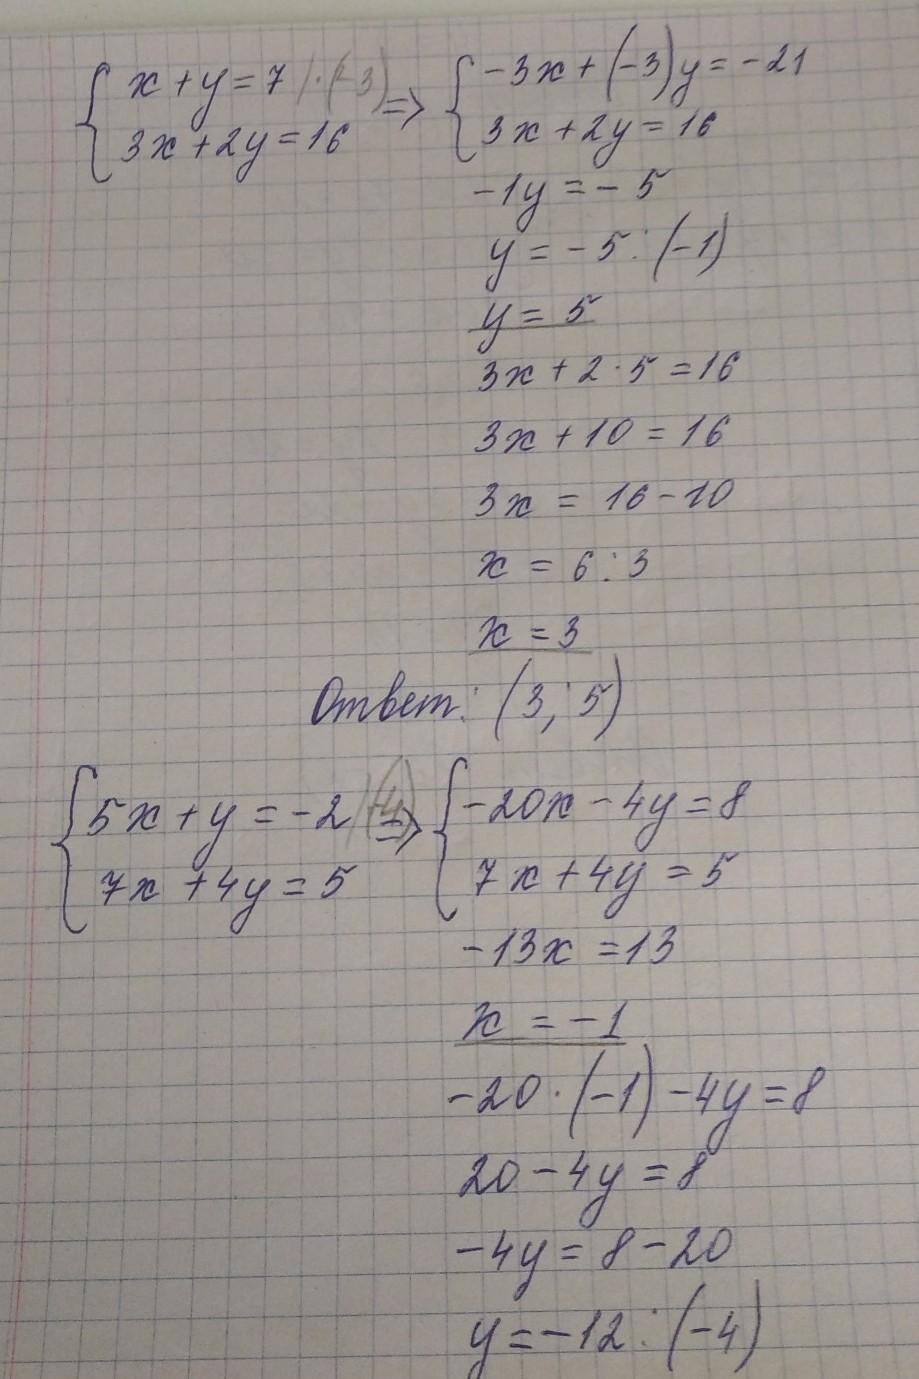 x + y = 7 | · (-3) => -3x + (-3)y = -21
3x + 2y = 16 3x + 2y = 16
-1y = - 5
y = - 5 : (-1)
y = 5
3x + 2 · 5 = 16
3x + 10 = 16
3x = 16 - 10
x = 6 : 3
x = 3
Ответ: (3; 5)
5x + y = -2 | (-4) => -20x - 4y = 8
7x + 4y = 5 7x + 4y = 5
-13x = 13
x = -1
-20 · (-1) - 4y = 8
20 - 4y = 8
-4y = 8 - 20
y = -12 : (-4)